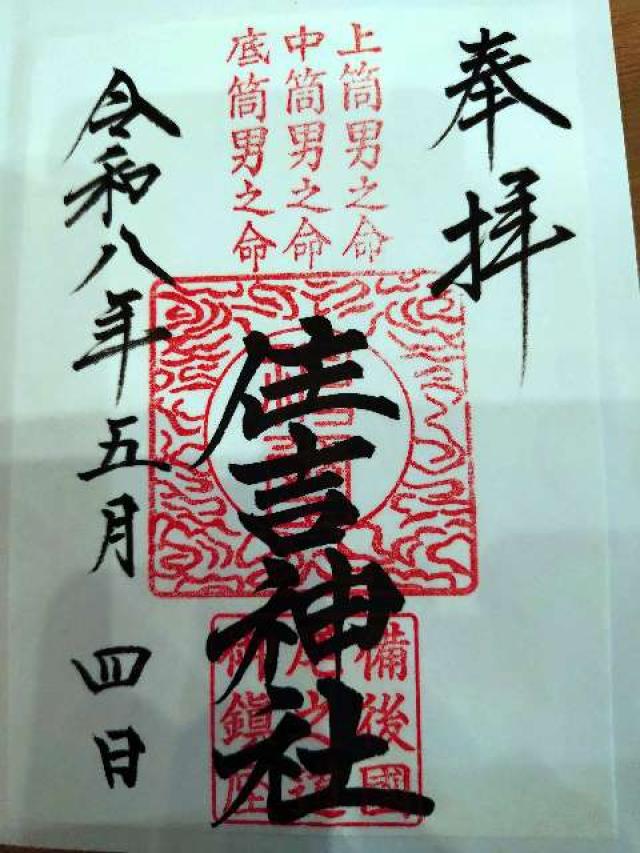 奉拝
上筒男之命
中筒男之命
底筒男之命
住吉神社
備後國
尾之道
御鎮座
令和八年五月 四日